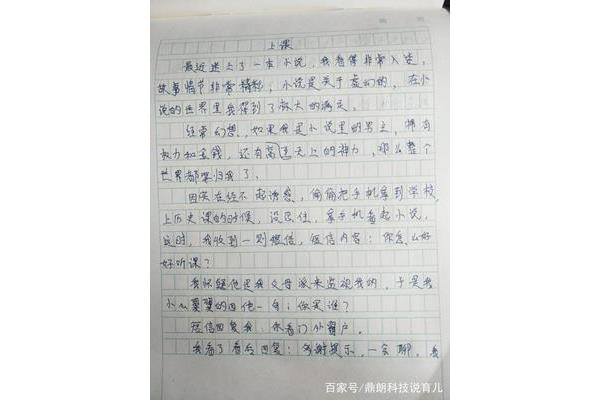 上课
最近迷上了一本小说，我看得非常入迷，
故事情节非常精彩，小说是关于虚幻的，在小
说的世界里我得到了放大的满足。
经常幻想，如果我是小说里的男主，拥有
权力和金钱，还有高过天上的神力，那么整个
世界都要归我了。
因实在经不起诱惑，偷偷把手机拿到学校，
上历史课的时候，没忍住，拿手机看起小说，
这时，我收到一则短信，短信内容：你怎么好
好听课？
我怀疑他是我父母派来监视我的，于是我
小心翼翼的回他一句：你是谁？
短信回复我：你看门外窗户。
我看了看后回复：多谢提示，一会聊，我
百家号/鼎朗科技说育儿